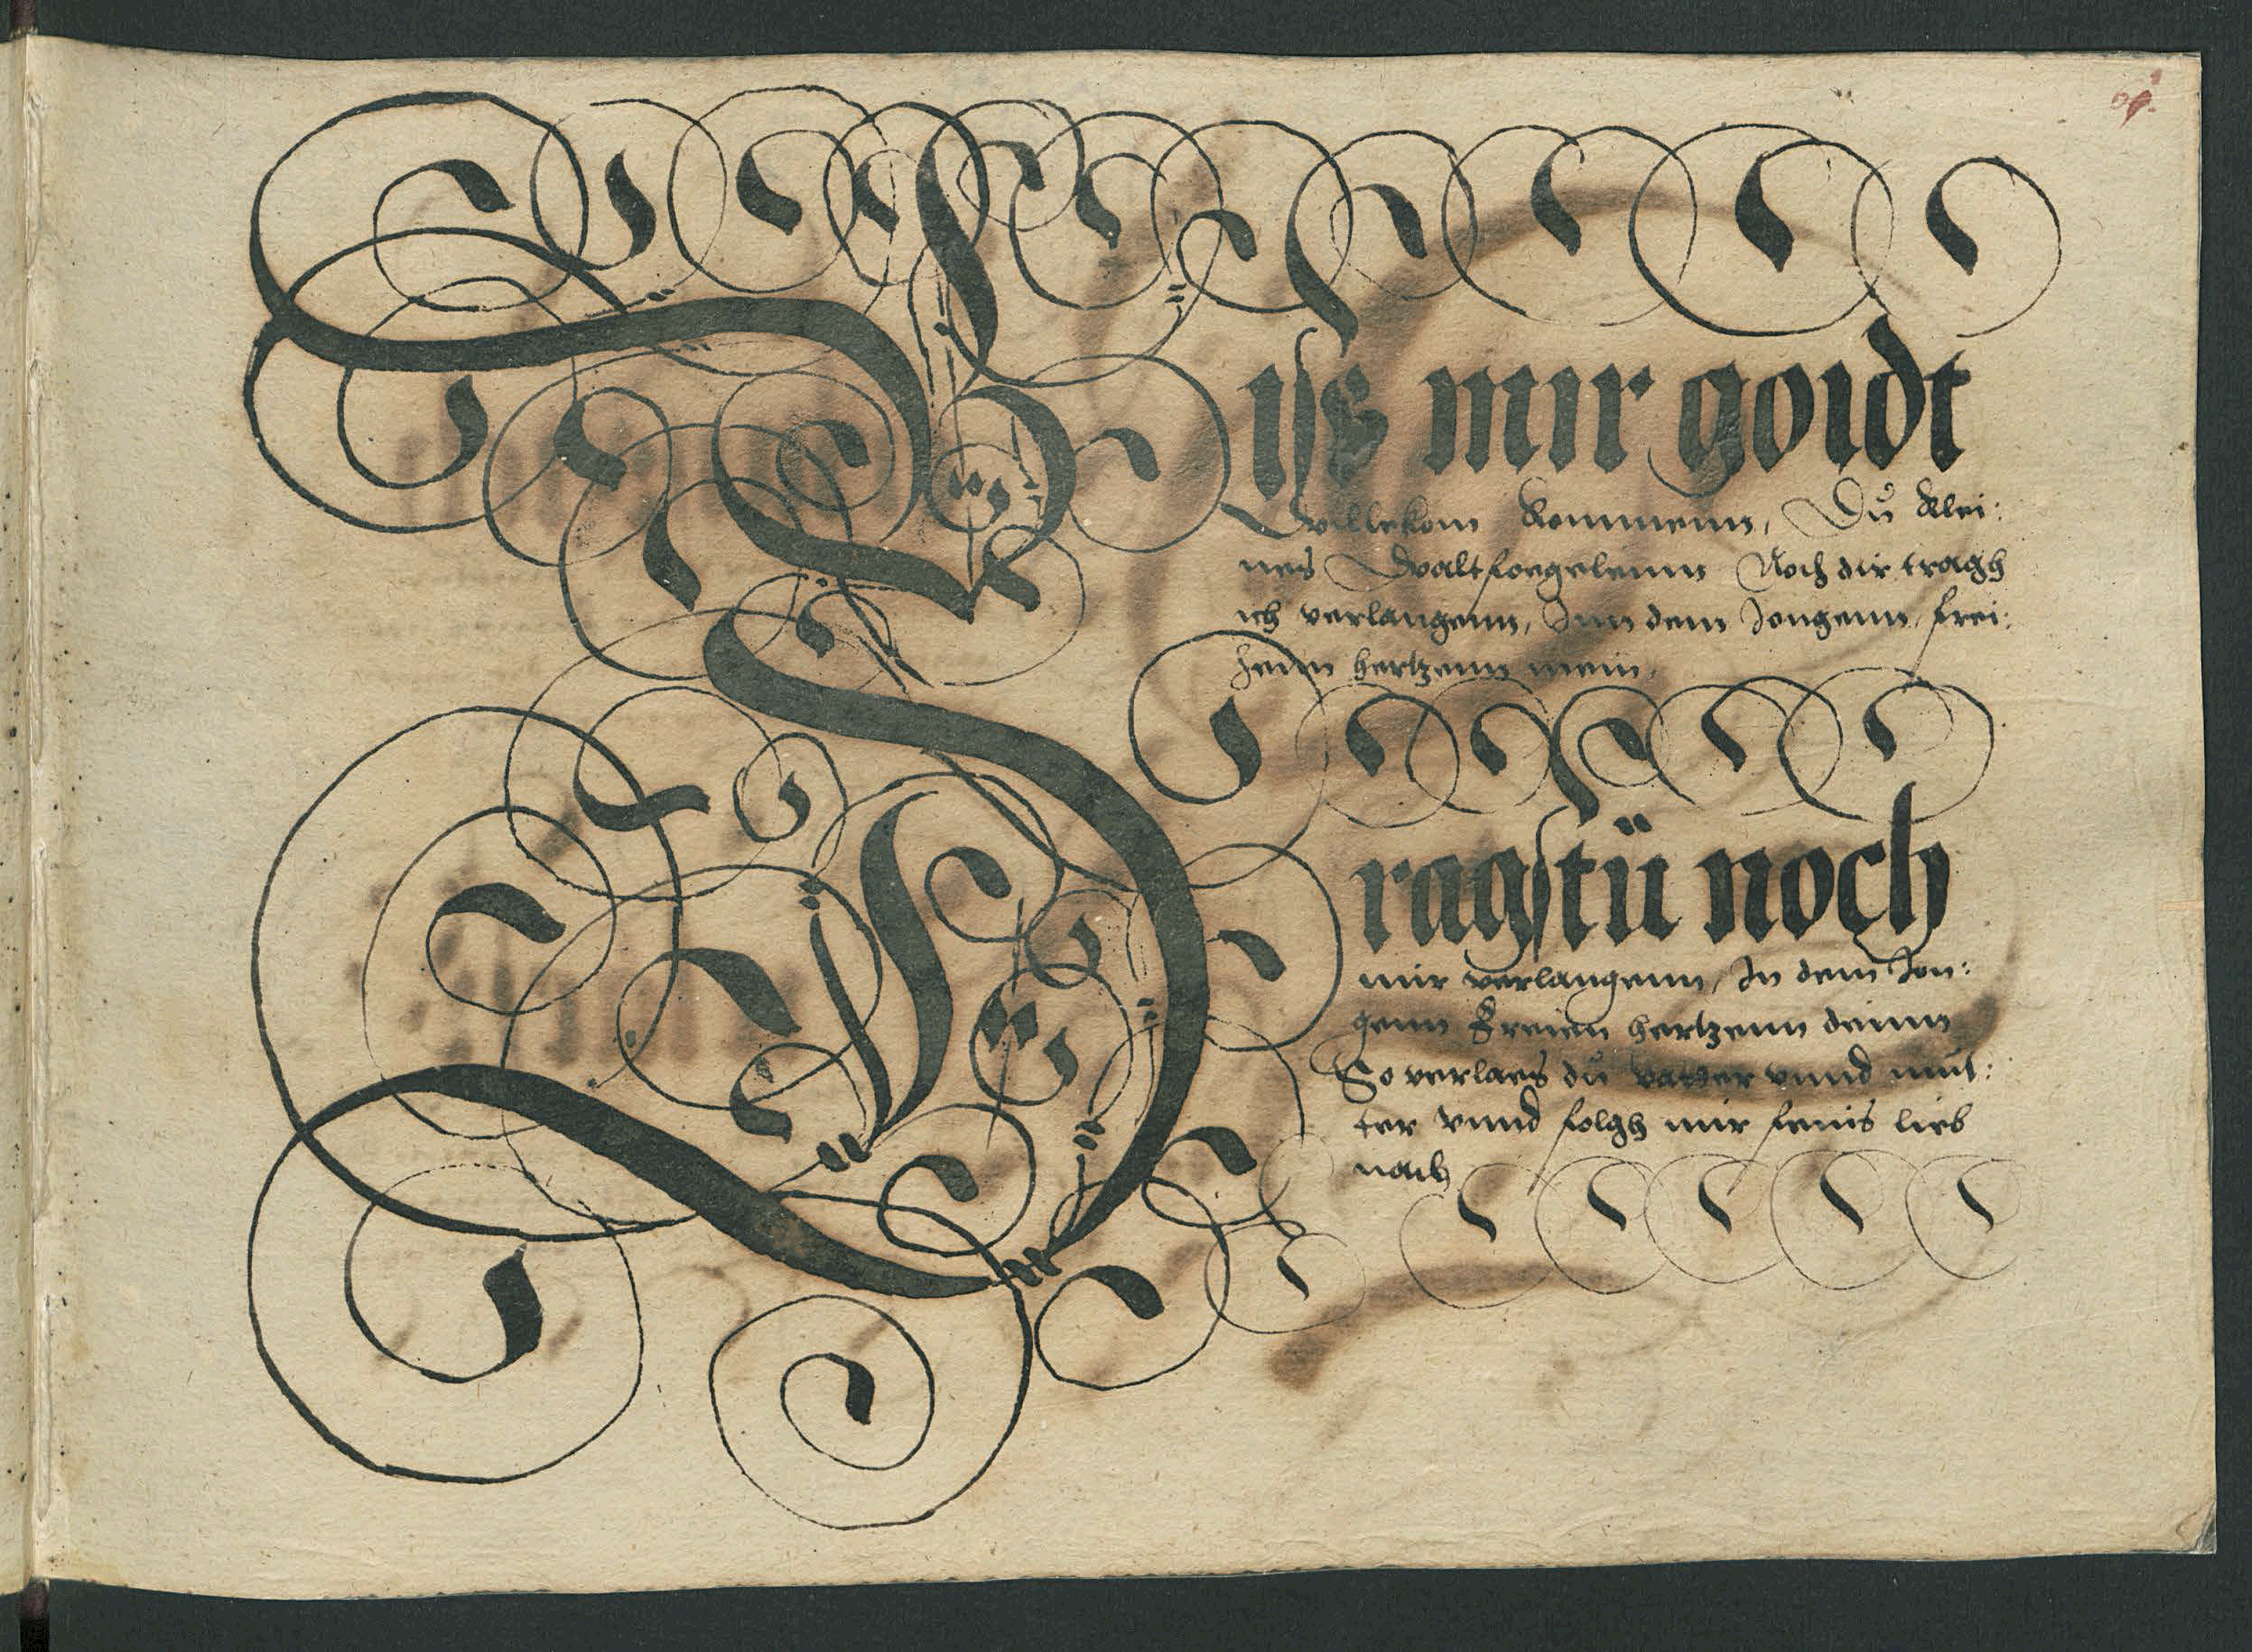 Bys mir goidt
willekom kommenn, Dů klei:
nes waltfoegelenn Noch dir tragh
ich verlangenn, Inn dem Jongenn, frei:
henn hertzenn mein,
Tragstü noch
mir verlangenn, In dem Jon:
genn Freien hertzenn deinn
So verlaes dů vatter vnnd můt:
ter vnnd folgh mir feins lieb
nach